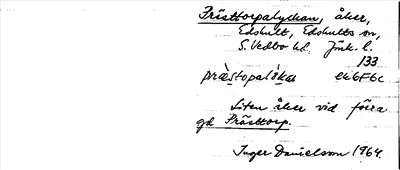 Prästtorpalyckan, åker,
Edshult, Edshults sn,
S. Vedbo hd. Jönk. l.
133
præ̀stopalỳka ek6F6c
Liten åker vid förra
gd Prästtorp.
Inger Danielsson 1964.